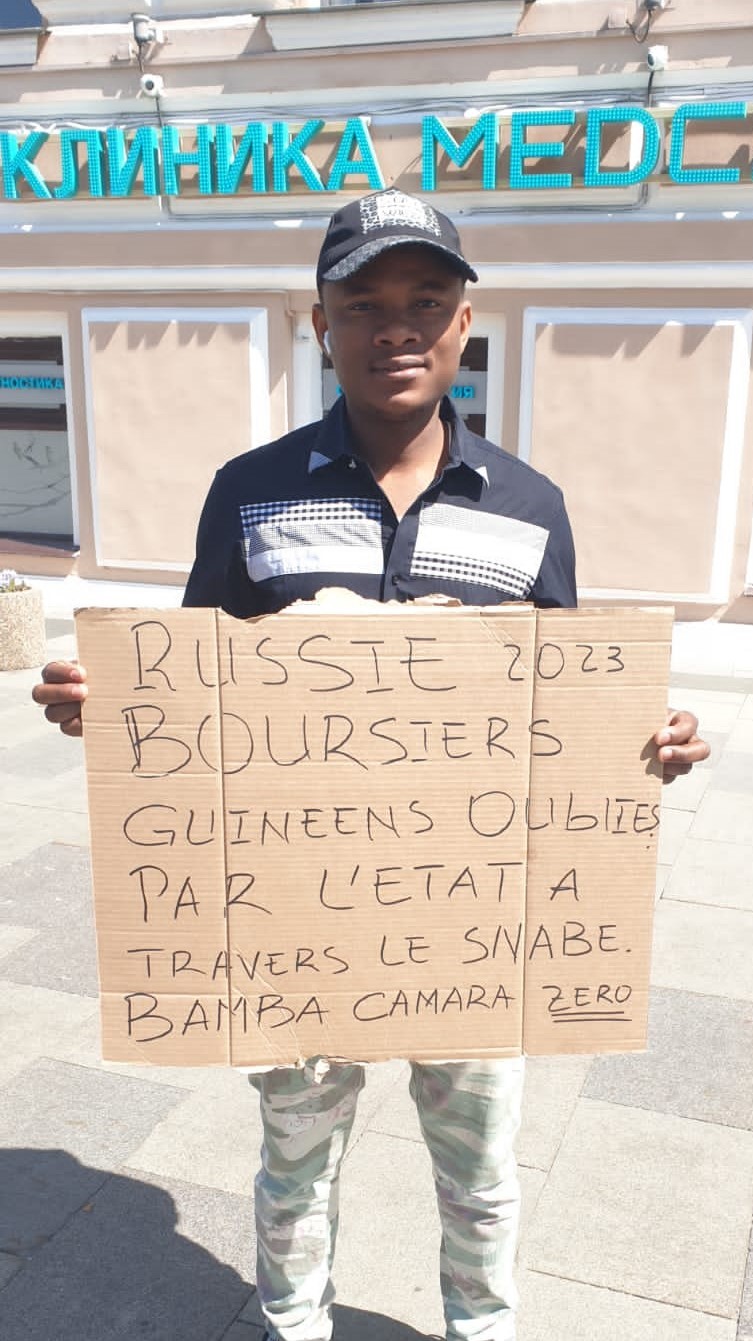 КЛИНИКА MEDC
НОСТИКА
ИЯ
RUSSIE 2023
BOURSIERS
GUINEENS OUblIES
PAR L'ETAT A
TRAVERS LE SNABE.
BAMBA CAMARA ZERO